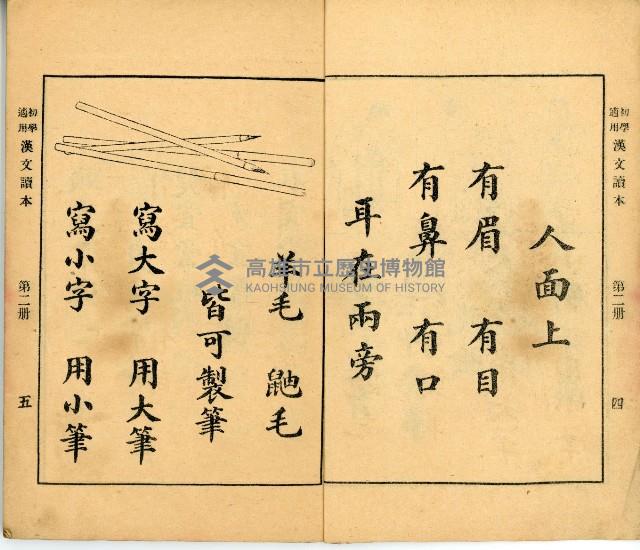 初學適用 漢文讀本 第二册 四
人面上
有眉 有目
有鼻 有口
耳在兩旁
羊毛 鼬毛
皆可製筆
寫大字 用大筆
寫小字 用小筆
初學適用 漢文讀本 第二册 五
高雄市立歷史博物館
KAOHSIUNG MUSEUM OF HISTORY